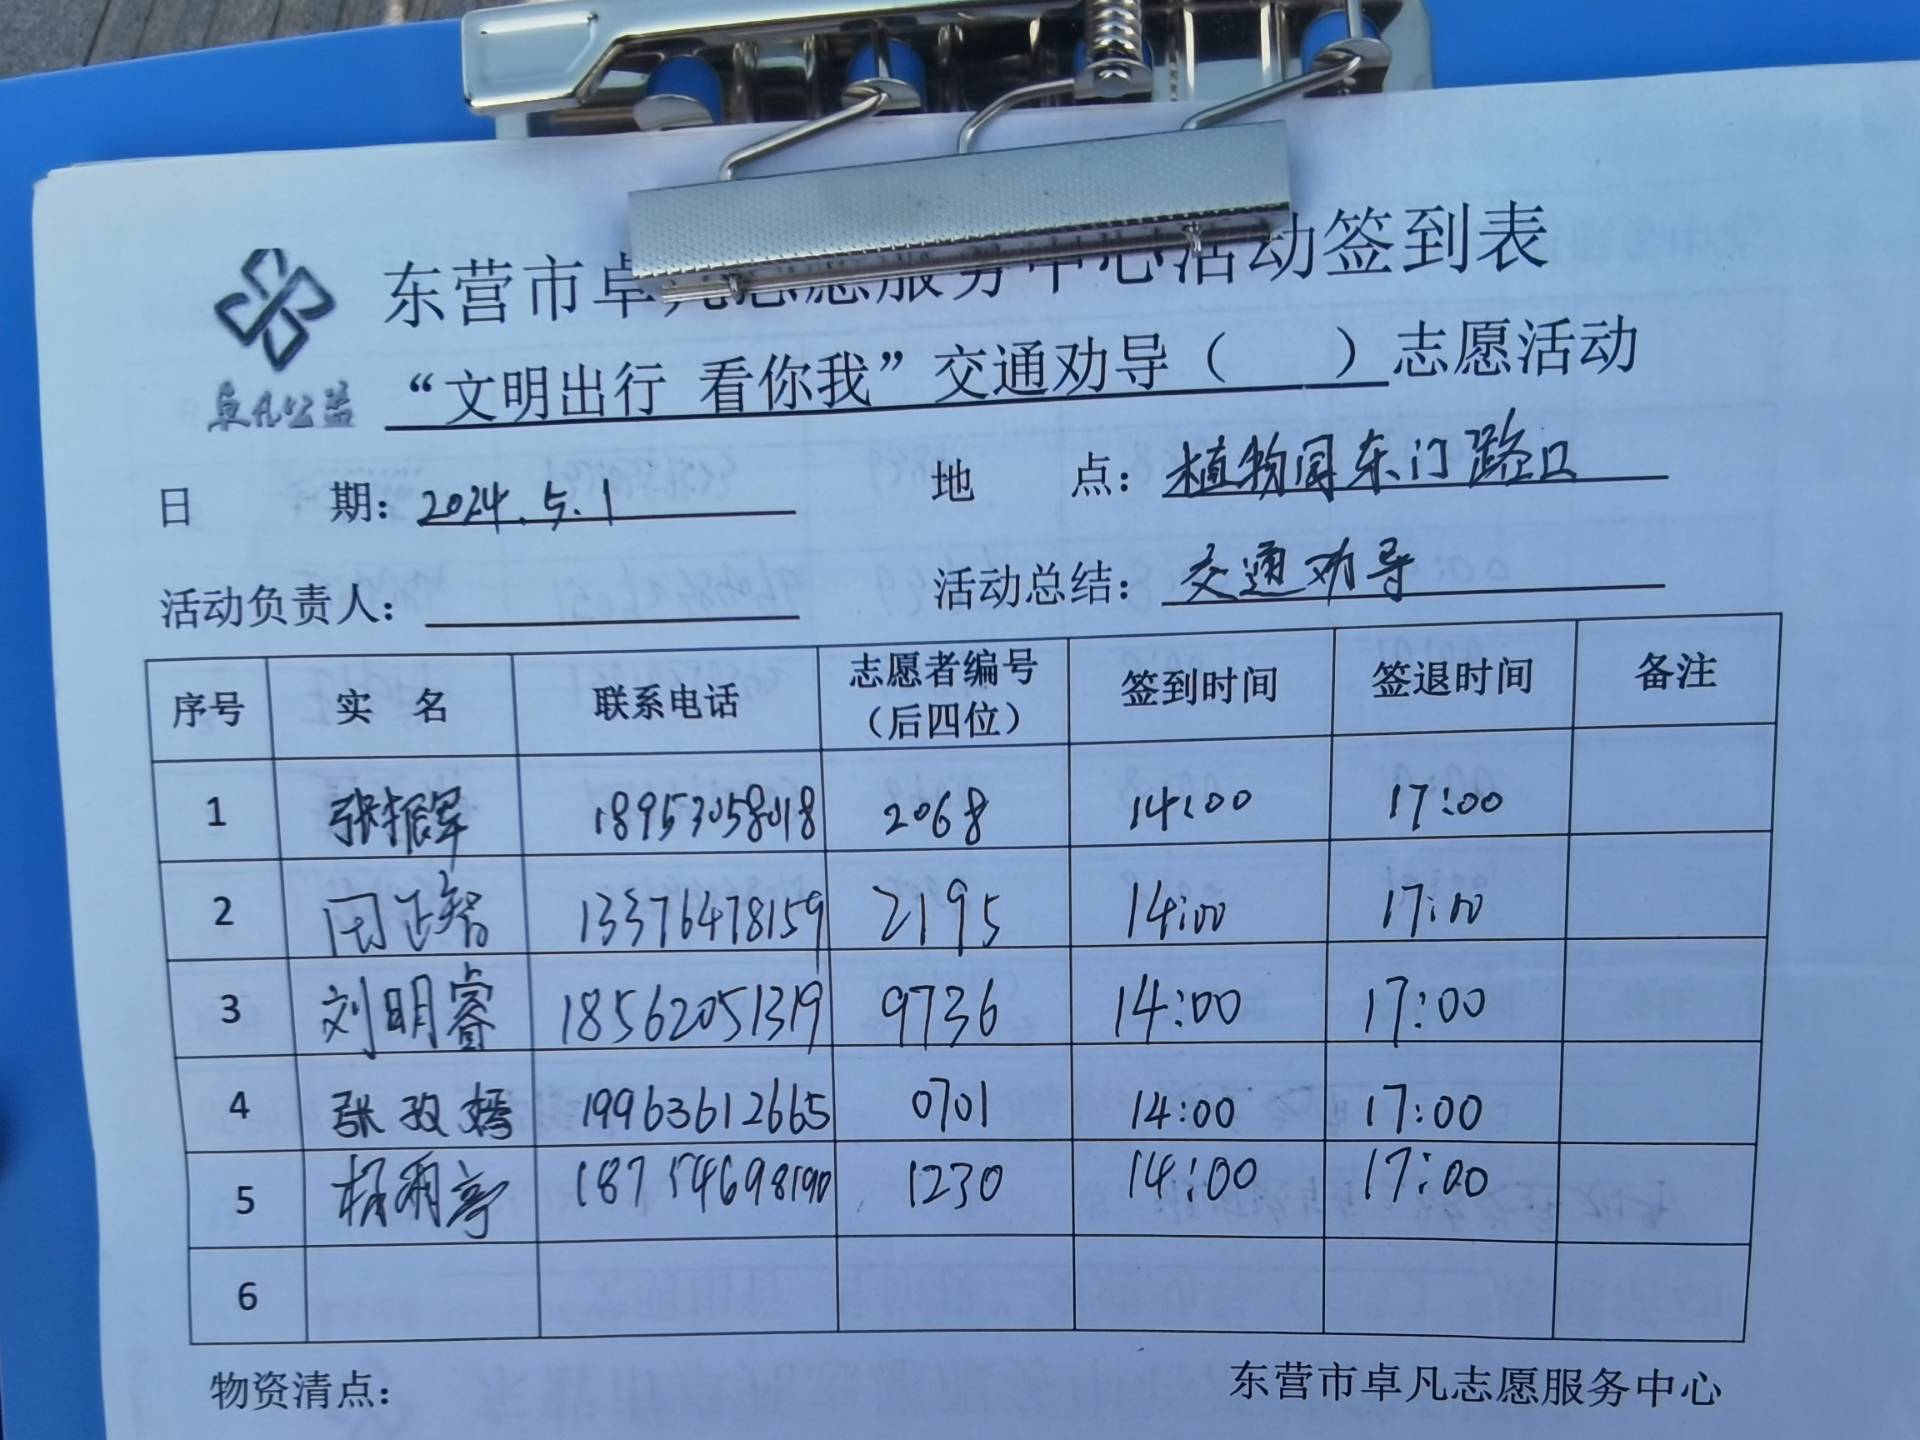 东营市卓凡志愿服务中心活动签到表
卓凡公益
“文明出行 看你我”交通劝导（ ）志愿活动
日 期：2024.5.1 地 点：植物园东门路口
活动负责人： 活动总结：交通劝导
序号 实 名 联系电话 志愿者编号（后四位） 签到时间 签退时间 备注
1 张振军 18953058018 2068 14:00 17:00
2 闫正智 13376478159 2195 14:00 17:00
3 刘明睿 18562051319 9736 14:00 17:00
4 张 19963612665 0701 14:00 17:00
5 杨雨亭 18754698190 1230 14:00 17:00
6
物资清点： 东营市卓凡志愿服务中心